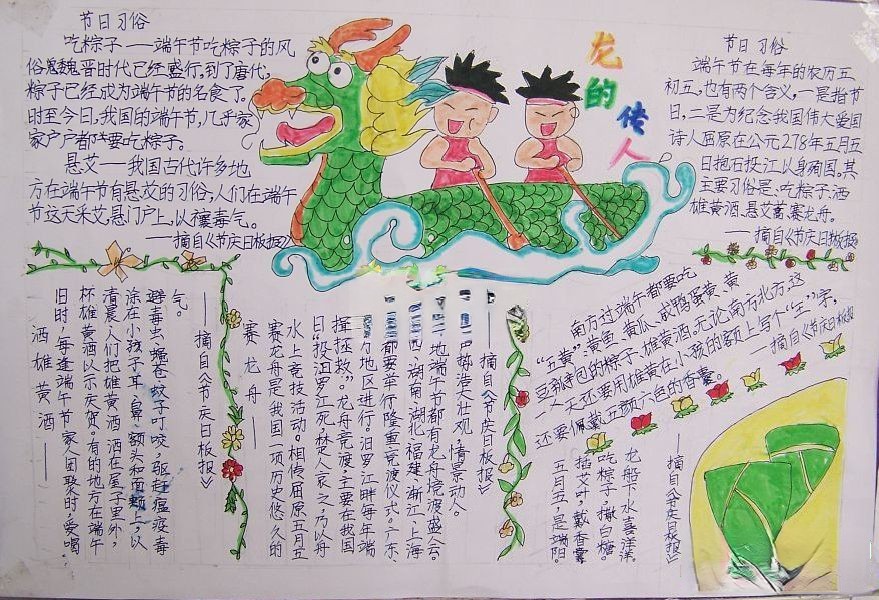 节日习俗
吃粽子——端午节吃粽子的风
俗，魏晋时代已经盛行，到了唐代，
粽子已经成为端午节的名食了。
时至今日，我国的端午节，几乎家
家户户都要吃粽子。
悬艾——我国古代许多地
方在端午节有悬艾的习俗，人们在端午
节这天采艾，悬门户上，以禳毒气。
——摘自《节庆日板报》
龙的传人
节日习俗
端午节在每年的农历五
初五，也有两个含义，一是指节
日，二是为纪念我国伟大爱国
诗人屈原在公元278年五月五
日抱石投江以身殉国。其
主要习俗是、吃粽子、洒
雄黄酒、悬艾蒿、赛龙舟。
——摘自《节庆日板报》
洒雄黄酒——
旧时，每逢端午节家人团聚时，爱喝
杯雄黄酒以示庆贺，有的地方在端午
清晨，人们把雄黄酒洒在屋子里外，
涂在小孩子耳、鼻、额头和面颊上，以
避毒虫、蝇苍蚊子叮咬，驱赶瘟疫毒
气。
——摘自《节庆日板报》
赛龙舟——
赛龙舟是我国一项历史悠久的
水上竞技活动。相传屈原五月五
日“投汨罗江死，楚人哀之，乃以舟
楫拯救。”龙舟竞渡，主要在我国
方地区进行。汨罗江畔每年端
都要举行隆重竞渡仪式。广东、
西、湖南、湖北、福建、浙江、上海
二地端午节都有龙舟竞渡盛会。
浩大壮观，情景动人。
——摘自《节庆日板报》
南方过端午都要吃
“五黄”：黄鱼、黄瓜、咸鸭蛋黄、黄
豆制包的粽子、雄黄酒。无论南方北方，这
一天还要用雄黄在小孩的额上写个“王”字，
还要佩戴五颜六色的香囊。
——摘自《节庆日板报
五月五，是端阳。
插艾叶，戴香囊
吃粽子，撒白糖。
龙船下水喜洋洋。
——摘自《节庆日板报》